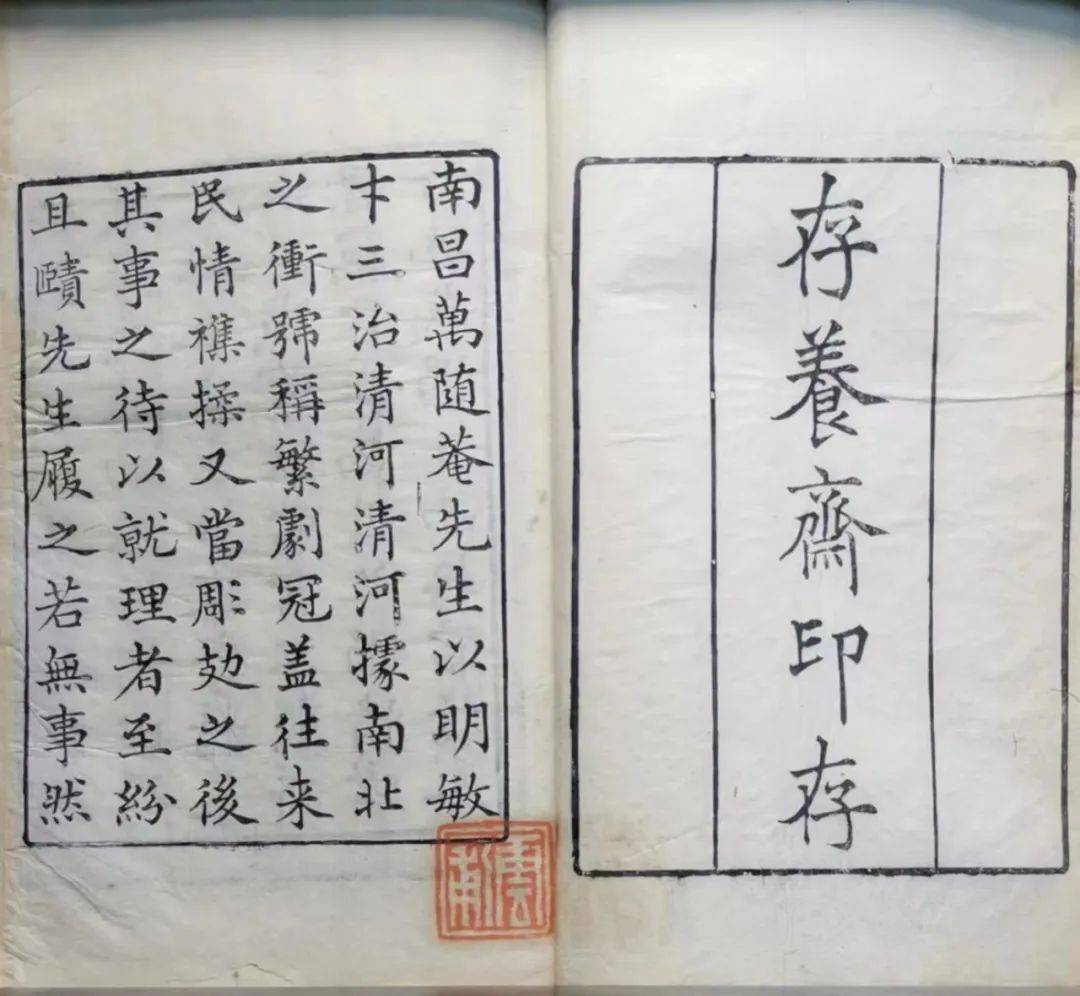 存養齋印存
南昌萬随菴先生以明敏
卞三治清河清河據南北
之衝號稱繁劇冠盖往来
民情襍揉又當彫攰之後
其事之待以就理者至紛
且賾先生履之若無事然
雲甫